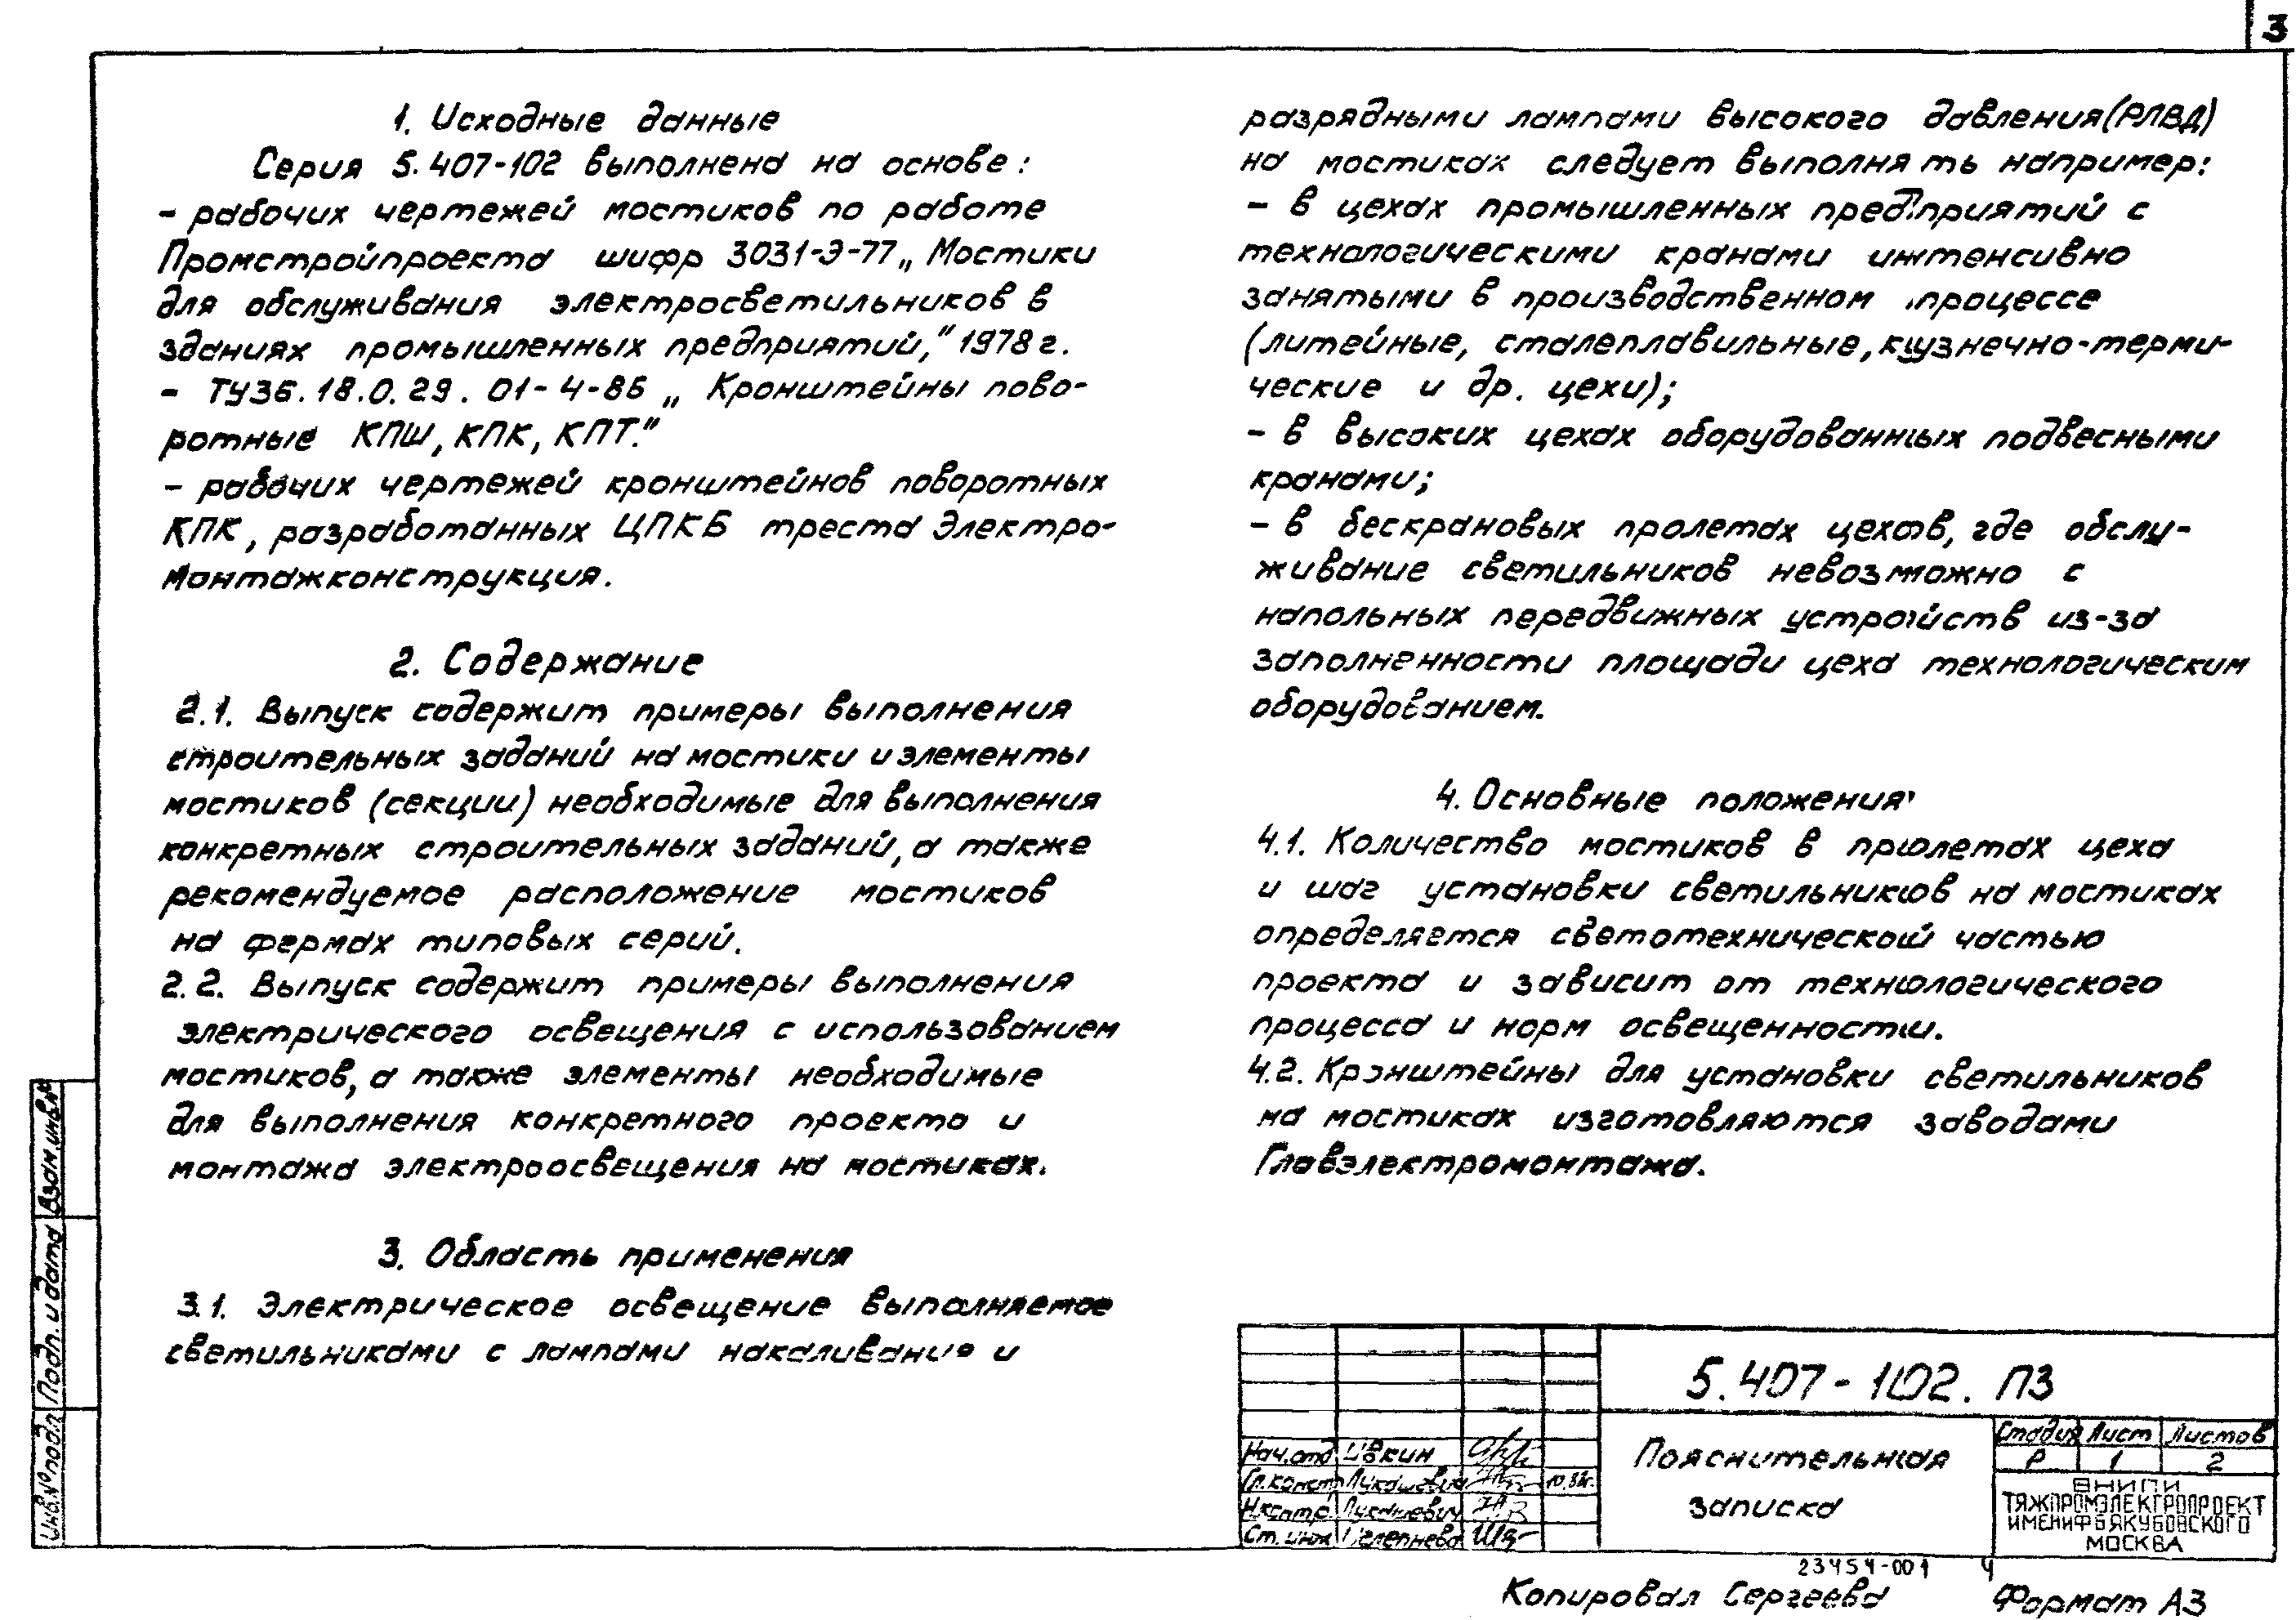 3
1. Исходные данные
Серия 5.407-102 выполнена на основе:
- рабочих чертежей мостиков по работе
Промстройпроекта шифр 3031-Э-77 „Мостики
для обслуживания электросветильников в
зданиях промышленных предприятий,” 1978 г.
- ТУ36.18.0.29.01-4-86 „Кронштейны пово-
ротные КПШ, КПК, КПТ.”
- рабочих чертежей кронштейнов поворотных
КПК, разработанных ЦПКБ треста Электро-
монтажконструкция.
2. Содержание
2.1. Выпуск содержит примеры выполнения
строительных заданий на мостики и элементы
мостиков (секции) необходимые для выполнения
конкретных строительных заданий, а также
рекомендуемое расположение мостиков
на фермах типовых серий.
2.2. Выпуск содержит примеры выполнения
электрического освещения с использованием
мостиков, а также элементы необходимые
для выполнения конкретного проекта и
монтажа электроосвещения на мостиках.
3. Область применения
3.1. Электрическое освещение выполняемое
светильниками с лампами накаливания и
разрядными лампами высокого давления (РЛВД)
на мостиках следует выполнять например:
- в цехах промышленных предприятий с
технологическими кранами интенсивно
занятыми в производственном процессе
(литейные, сталеплавильные, кузнечно-терми-
ческие и др. цехи);
- в высоких цехах оборудованных подвесными
кранами;
- в бескрановых пролетах цехов, где обслу-
живание светильников невозможно с
напольных передвижных устройств из-за
заполненности площади цеха технологическим
оборудованием.
4. Основные положения
4.1. Количество мостиков в пролетах цеха
и шаг установки светильников на мостиках
определяется светотехнической частью
проекта и зависит от технологического
процесса и норм освещенности.
4.2. Кронштейны для установки светильников
на мостиках изготовляются заводами
Главэлектромонтажа.
Взам. инв. №
Подп. и дата
Инв. № подл
5.407-102. ПЗ
Нач. отд
Гл. констр Лукашевич
Н.контр. Лукашевич
Ст. инж
Пояснительная
записка
Стадия Лист Листов
Р 1 2
ВНИПИ
ТЯЖПРОМЭЛЕКТРОПРОЕКТ
ИМЕНИ Ф Б ЯКУБОВСКОГО
МОСКВА
23454-001 4
Копировал Сергеева Формат А3